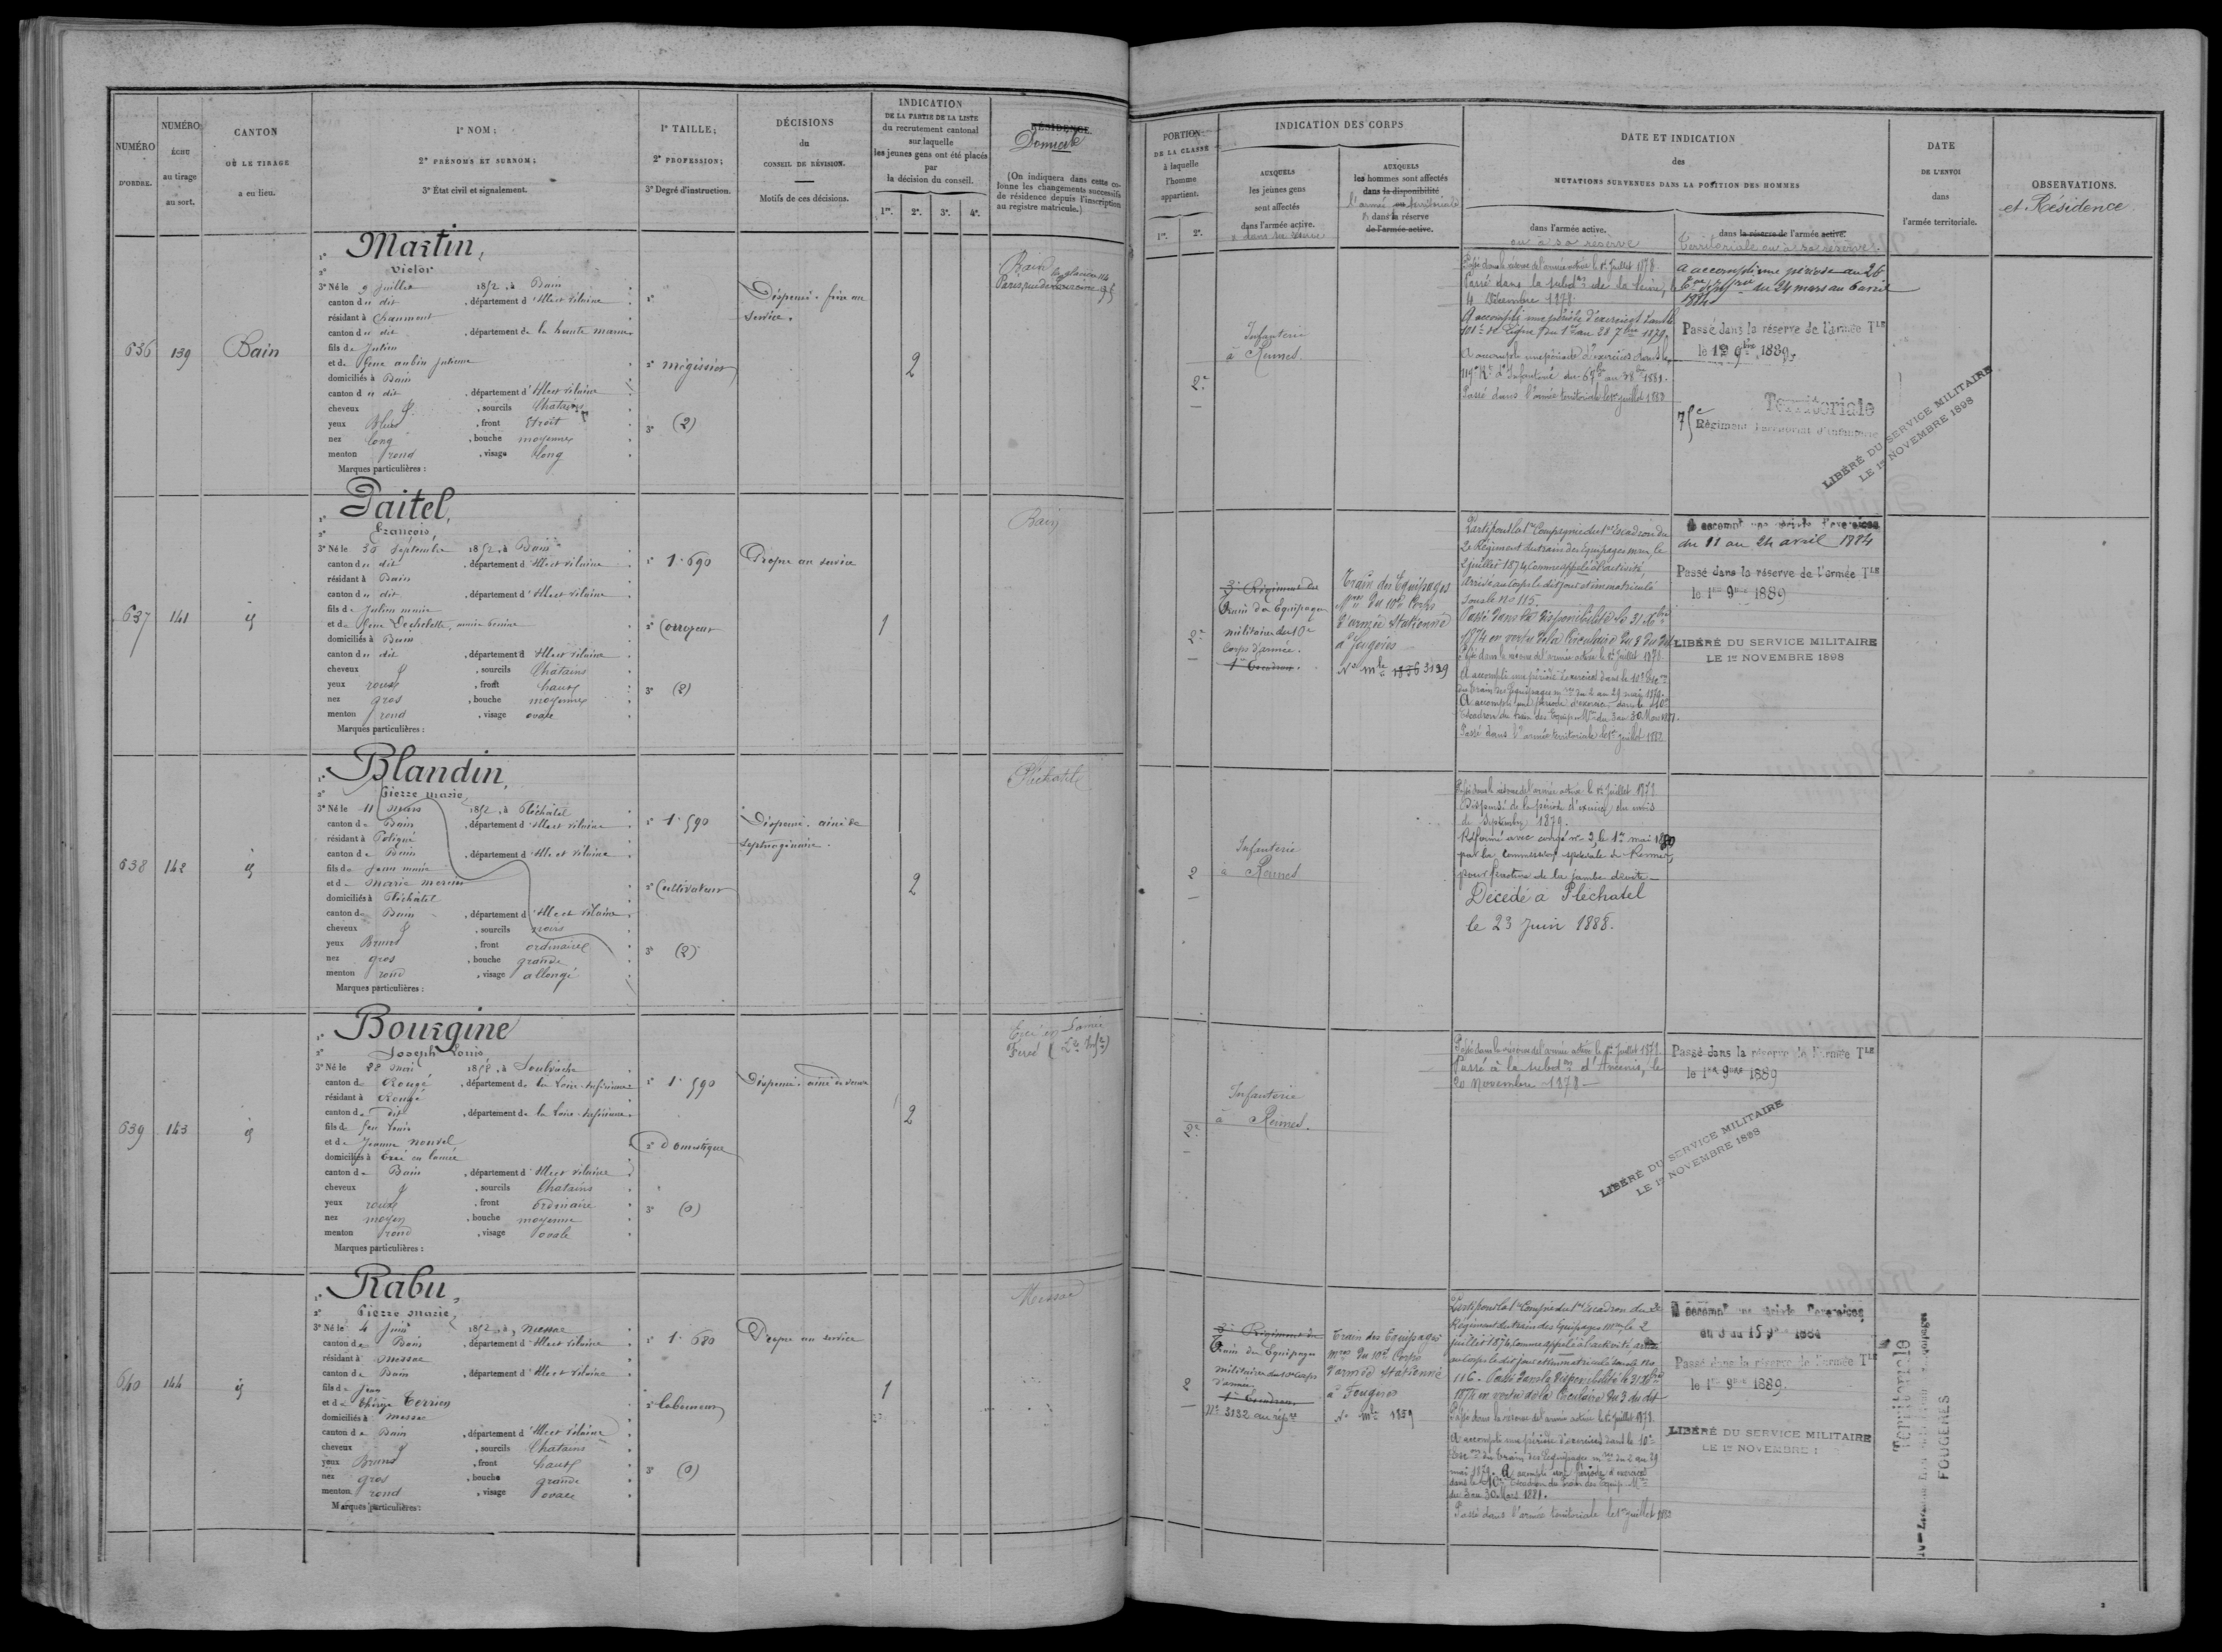 NUMÉRO
D'ORDRE.
NUMÉRO
ÉCHU
au tirage
au sort.
CANTON
OÙ LE TIRAGE
a eu lieu.
1° NOM ;
2° PRÉNOMS ET SURNOM ;
3° État civil et signalement.
1° TAILLE ;
2° PROFESSION ;
3° Degré d'instruction.
DÉCISIONS
du
CONSEIL DE RÉVISION.
Motifs de ces décisions.
INDICATION
DE LA PARTIE DE LA LISTE
du recrutement cantonal
sur laquelle
les jeunes gens ont été placés
par
la décision du conseil.
1re. 2e. 3e. 4e.
RÉSIDENCE.
Domicile
(On indiquera dans cette co-
lonne les changements successifs
de résidence depuis l'inscription
au registre matricule.)
PORTION
DE LA CLASSE
à laquelle
l'homme
appartient.
1re. 2e.
INDICATION DES CORPS
AUXQUELS
les jeunes gens
sont affectés
dans l'armée active.
AUXQUELS
les hommes sont affectés
dans la disponibilité
l'armée territoriale
dans la réserve
de l'armée active.
DATE ET INDICATION
des
MUTATIONS SURVENUES DANS LA POSITION DES HOMMES
dans l'armée active.
ou à sa réserve
dans la réserve de l'armée active.
Territoriale ou à sa réserve.
DATE
DE L'ENVOI
dans
l'armée territoriale.
OBSERVATIONS.
et Résidence
636 139 Bain
1° Martin,
2° Victor
3° Né le 9 juillet 1852, à Bain
canton du dit, département d'Ille et Vilaine
résidant à Chaumont
canton du dit, département de la haute marne
fils de Julien
et de feue aubin Julienne
domiciliés à Bain
canton du dit, département d'Ille et Vilaine
cheveux &, sourcils Chatains
yeux Bleus, front Etroit
nez long, bouche moyenne
menton rond, visage long
Marques particulières :
1°
2° mégissier
3° (2)
Dispensé. frère au
service.
2
Bain
Paris
2e
Infanterie
à Rennes
Passé dans la réserve de l'armée active le 1er Juillet 1878.
Passé dans la subdon de la Seine, le
4 Décembre 1878
A accompli une période d'exercices dans le
101e de ligne du 1er au 28 7bre 1879
A accompli une période d'exercices dans le
119e Rt d'Infanterie du
Passé dans l'armée territoriale le 1er juillet 1882
a accompli une période au 26
du 24 mars au 6 avril
1884
Passé dans la réserve de l'armée TLE
le 1er 9bre 1889
Territoriale
75e Régiment Territorial d'Infanterie
LIBÉRÉ DU SERVICE MILITAIRE
LE 1er NOVEMBRE 1898
637 141 id
1° Paitel,
2° François
3° Né le 30 Septembre 1852, à Bain
canton du dit, département d'Ille et Vilaine
résidant à Bain
canton du dit, département d'Ille et Vilaine
fils de Julien marie
et de feue Dechelette, marie
domiciliés à Bain
canton du dit, département d'Ille et Vilaine
cheveux &, sourcils Chatains
yeux roux, front haut
nez gros, bouche moyenne
menton rond, visage ovale
Marques particulières :
1° 1.690
2° Corroyeur
3° (2)
Propre au service
1
Bain
2e
3e Régiment du
Train des Equipages
militaire du 10e
Corps d'armée.
1er Escadron.
Train des Equipages
mres du 10e Corps
d'armée Stationné
à Fougères
No mle 1856 3129
Parti pour la 1re Compagnie du 1er Escadron du
2e Régiment du train des Equipages mres, le
2 juillet 1874 comme appelé à l'activité,
Arrivé au corps le dit jour et immatriculé
sous le no 115.
Passé dans la disponibilité le 31 Xbre
1874 en vertu de la Circulaire du 8 du dit
Passé dans la réserve de l'armée active le 1er Juillet 1878
A accompli une période d'exercices dans le 10e Escon
du train des Equipages mres du 2 au 29 mai 1879.
A accompli une période d'exercices dans le 10e
Escadron du train des Equip. Mres du 3 au 30 Mars 1881.
Passé dans l'armée territoriale le 1er juillet 1882
A accompli une période d'exercices
du 11 au 24 avril 1884
Passé dans la réserve de l'armée TLE
le 1er 9bre 1889
LIBÉRÉ DU SERVICE MILITAIRE
LE 1er NOVEMBRE 1898
638 142 id
1° Blandin,
2° Pierre Marie
3° Né le 11 mars 1852, à Pléchâtel
canton de Bain, département d'Ille et Vilaine
résidant à Poligné
canton de Bain, département d'Ille et Vilaine
fils de Jean marie
et de Marie
domiciliés à Pléchâtel
canton de Bain, département d'Ille et Vilaine
cheveux &, sourcils noirs
yeux Bruns, front ordinaire
nez gros, bouche grande
menton rond, visage allongé
Marques particulières :
1° 1.590
2° Cultivateur
3° (2)
Dispensé. ainé de
septuagénaire.
2
Pléchatel
2
Infanterie
à Rennes
Passé dans la réserve de l'armée active le 1er Juillet 1878
Dispensé de la période d'exercices du mois
de Septembre 1879.
Réformé avec congé no 2, le 1er mai 1880
par la Commission spéciale de Rennes,
pour fracture de la jambe droite
Décédé à Pléchatel
le 23 Juin 1888.
639 143 id
1° Bourgine
2° Joseph Louis
3° Né le 22 1852, à Soulvache
canton de Rougé, département de la Loire-Inférieure
résidant à Rougé
canton du dit, département de la Loire-Inférieure
fils de feu Louis
et de Jeanne nouvel
domiciliés à Ercé en lamée
canton de Bain, département d'Ille et Vilaine
cheveux &, sourcils Chatains
yeux roux, front ordinaire
nez moyen, bouche moyenne
menton rond, visage ovale
Marques particulières :
1° 1.590
2° Domestique
3° (0)
Dispensé. ainé de veuve
2
Ercé en Lamée
2e
Infanterie
à Rennes.
Passé dans la réserve de l'armée active le 1er Juillet 1878
Passé à la subdon d'Ancenis, le
20 Novembre 1878
Passé dans la réserve de l'armée TLE
le 1er 9bre 1889
LIBÉRÉ DU SERVICE MILITAIRE
LE 1er NOVEMBRE 1898
640 144 id
1° Rabu,
2° Pierre Marie
3° Né le 4 Juin 1852, à Messac
canton de Bain, département d'Ille et Vilaine
résidant à Messac
canton de Bain, département d'Ille et Vilaine
fils de Jean
et de Thérèse Terrien
domiciliés à Messac
canton de Bain, département d'Ille et Vilaine
cheveux &, sourcils Chatains
yeux Bruns, front haut
nez gros, bouche grande
menton rond, visage ovale
Marques particulières :
1° 1.680
2° Laboureur
3° (0)
Propre au service
1
Messac
2
3e Régiment du
Train des Equipages
militaire du 10e Corps
d'armée.
1er Escadron.
No 3132 au
Train des Equipages
mres du 10e Corps
d'armée Stationné
à Fougères
No mle 1859
Parti pour la 1re Compie du 1er Escadron du 2e
Régiment du train des Equipages mres, le 2
juillet 1874 comme appelé à l'activité, arrivé
au corps le dit jour et immatriculé sous le no
116. Passé dans la disponibilité le 31 Xbre
1874 en vertu de la Circulaire du 8 du dit
Passé dans la réserve de l'armée active le 1er Juillet 1878
A accompli une période d'exercices dans le 10e
Escon du train des Equipages mres du 2 au 29
mai 1879. A accompli une période d'exercices
dans le 10e Escadron du train des Equip. Mres
du 3 au 30 Mars 1881.
Passé dans l'armée territoriale le 1er juillet 1882
A accompli une période d'exercices
du 3 au 15 9bre 1884
Passé dans la réserve de l'armée TLE
le 1er 9bre 1889.
LIBÉRÉ DU SERVICE MILITAIRE
LE 1er NOVEMBRE 1
Territoriale
FOUGÈRES